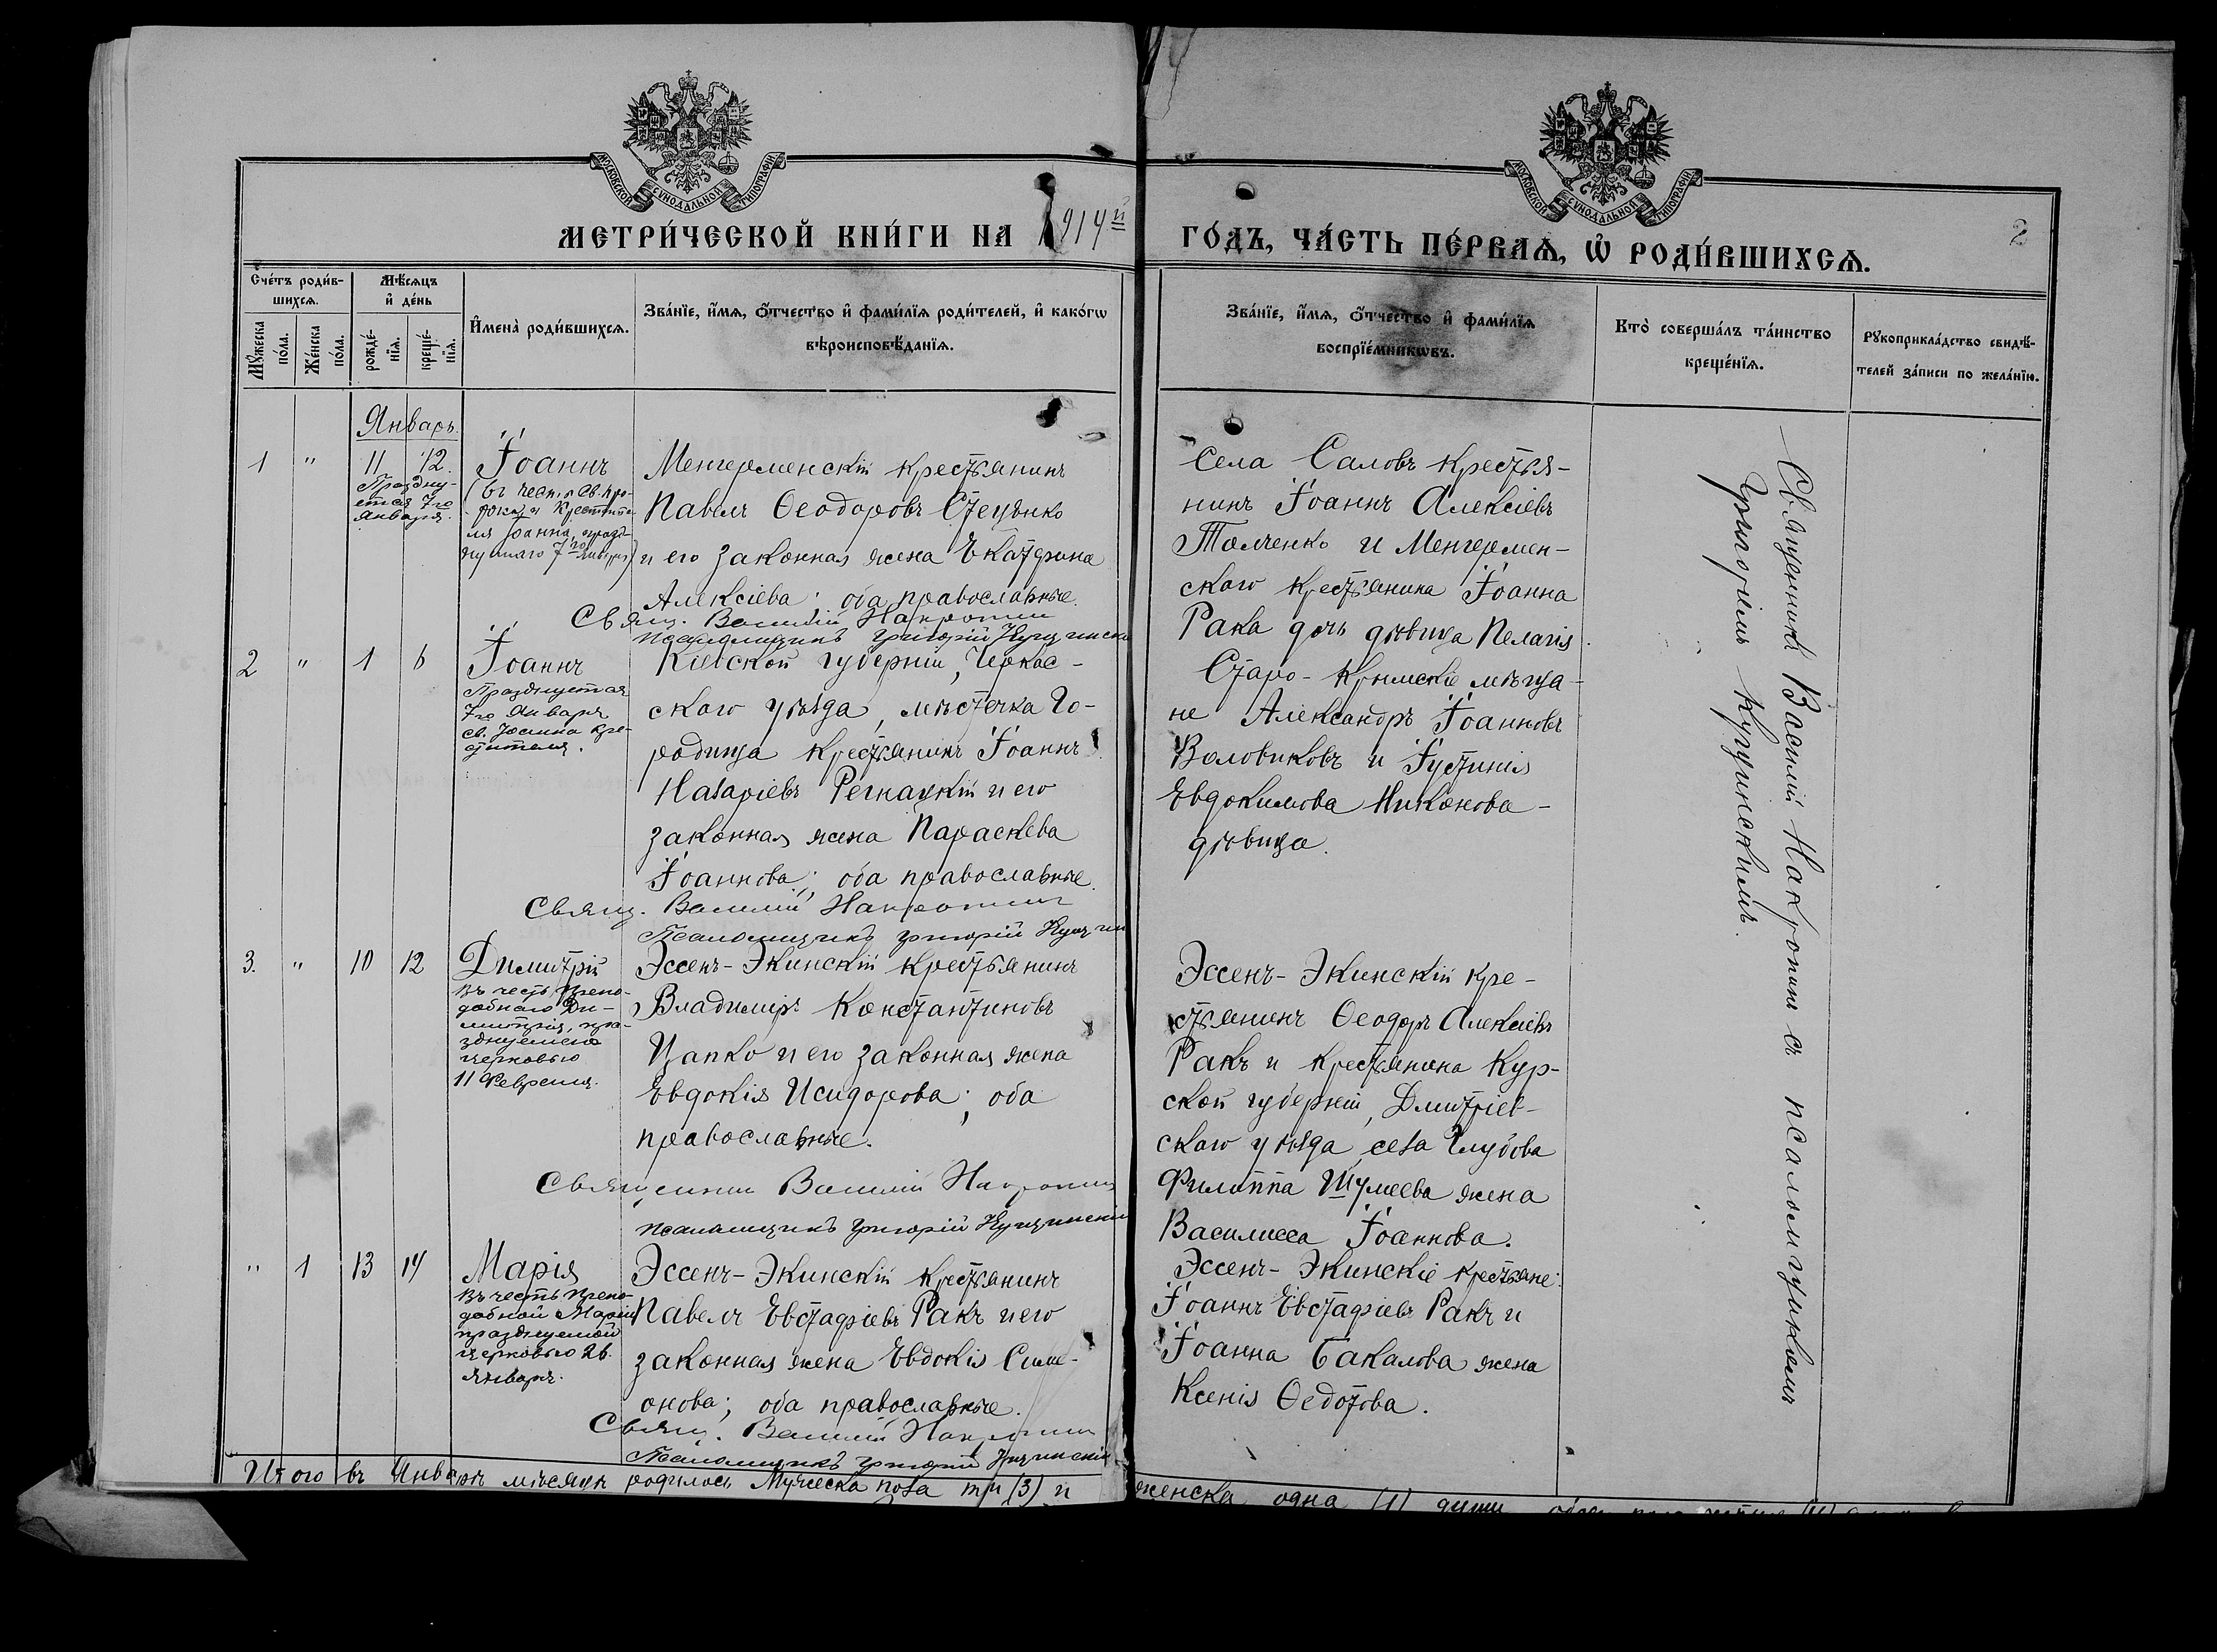 МОСКОВСКОЙ СѴНОДАЛЬНОЙ ТИПОГРАФІИ
МОСКОВСКОЙ СѴНОДАЛЬНОЙ ТИПОГРАФІИ
МЕТРИ́ЧЕСКОЙ КНИ́ГИ НА 1914й
ГО́ДЪ, ЧА́СТЬ ПЕ́РВАѦ, Ѡ РОДИ́ВШИХСѦ.
2
Сче́тъ роди́в-
шихсѧ.
Мꙋ́жеска
по́ла.
Же́нска
по́ла.
Мѣ́сѧцъ
и҆ де́нь
рожде́-
нїѧ.
креще́-
нїѧ.
И҆мена̀ роди́вшихсѧ.
Зва́нїе, и҆́мѧ, ѻ҆́тчество и҆ фами́лїѧ роди́телей, и҆ како́гѡ
вѣроисповѣ́данїѧ.
Зва́нїе, и҆́мѧ, ѻ҆́тчество и҆ фами́лїѧ
воспрїе́мникѡвъ.
Кто̀ соверша́лъ та́инство
креще́нїѧ.
Рꙋкоприкла́дство свидѣ́-
телей за́писи по жела́нїю.
Январь.
1 " 11 12.
Праздну-
ется 7го
Января.
Іоаннъ
(въ честь Св. про-
рока и Крестите-
ля Іоанна, празд-
нуемаго 7го Января)
Менгерменскій крестьянинъ
Павелъ Ѳеодоровъ Стеценко
и его законная жена Екатерина
Алексіева; оба православные.
Свящ. Василій Накропинъ
Псаломщикъ Григорій Куцински
Села Саловъ крестья-
нинъ Іоаннъ Алексіевъ
Толченко и Менгермен-
скаго крестьянина Іоанна
Рака дочь дѣвица Пелагія.
Священникъ Василій Накропинъ съ псаломщикомъ
Григоріемъ Куцинскимъ.
2 " 1 6
Іоаннъ
Празднуется
7го Января
св. Іоанна Кре-
стителя.
Кіевской губерніи, Черкас-
скаго уѣзда, мѣстечка Го-
родища крестьянинъ Іоаннъ
Назаріевъ и его
законная жена Параскева
Іоаннова; оба православные.
Свящ. Василій Накропинъ
Псаломщикъ Григорій Куцин
Старо-Крымскіе мѣща-
не Александръ Іоанновъ
Воловиковъ и Іустинія
Евдокимова Никонова -
дѣвица.
3. " 10 12
Димитрій
въ честь Препо-
добнаго Ди-
митрія, пра-
зднуемаго
церковью
11 Февраля.
Эссенъ-Экинскій крестьянинъ
Владиміръ Константиновъ
Цапко и его законная жена
Евдокія Исидорова; оба
православные.
Священникъ Василій Накропинъ
Псаломщикъ Григорій Куцинскій
Эссенъ-Экинскій кре-
стьянинъ Ѳеодоръ Алексіевъ
Ракъ и крестьянина Кур-
ской губерніи, Дмитріев-
скаго уѣзда, села Глубова
Филиппа Шумеева жена
Василисса Іоаннова.
" 1 13 14
Марія
въ честь Препо-
добной Маріи
празднуемой
церковью 26.
Января.
Эссенъ-Экинскій крестьянинъ
Павелъ Евстафіевъ Ракъ и его
законная жена Евдокія Симе-
онова; оба православные.
Свящ. Василій Накропинъ
Псаломщикъ Григорій Куцинскій
Эссенъ-Экинскіе крестьяне:
Іоаннъ Евстафіевъ Ракъ и
Іоанна Бакалова жена
Ксенія Ѳедотова.
Итого въ Январѣ мѣсяцѣ родилось Мужеска пола три (3) и
женска одна (1)